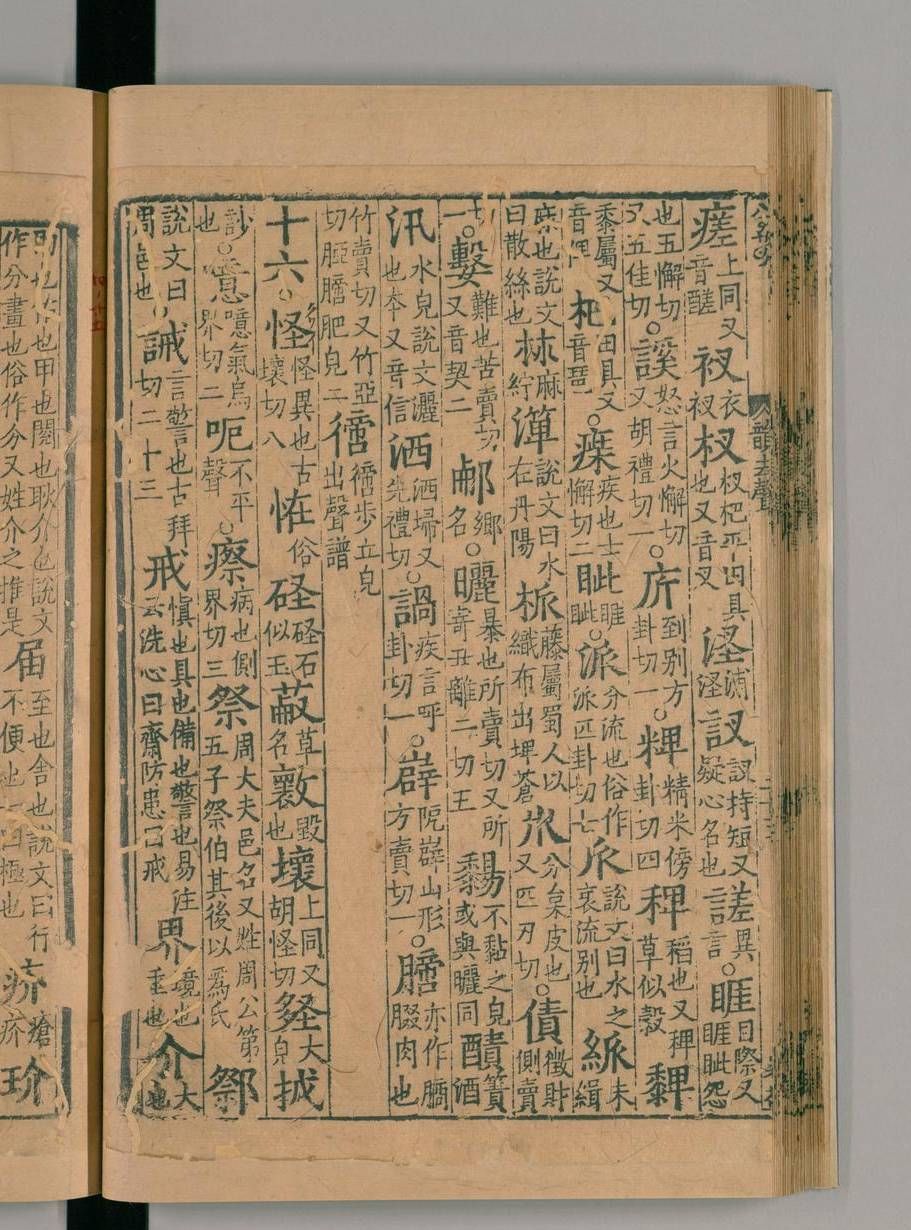 瘥上同又音醝衩衣衩杈杈杷平田具也又音叉訍訍持短又疑心名也䜺異言○睚目際又睚眦怨
也五懈切又五佳切○謑怒言火懈切又胡禮切一○庍到別方卦切一○粺精米傍卦切四稗稻也又稗草似穀
黍屬又音杷田具又音琶○㾹疾也士懈切二眦睚眦○派分流也俗作𣲖匹卦切七𠂢說文曰水之衺流別也未緝
麻也說文曰散絲也𣏟麻紵渒說文曰水在丹陽藤屬蜀人以織布出埤蒼𣎳分枲皮也又匹刃切○債徵財側賣
切一○難也苦賣切又音契二鄉名○曬暴也所賣切又所寄丑離二切五不黏之皃或與曬同簀酒
汛水皃說文灑也本又音信洒洒埽又先禮切○疾言呼卦切一○阨山形方賣切一○膪亦作腏肉也
竹賣切又竹亞切膪肥皃二步立皃出聲譜
十六○怪怪異也古壞切八恠俗硁石似玉草名毀也壞上同又胡怪切大皃
也○噫噫氣烏界切二呃不平聲○瘵病也側界切三祭周大夫邑名又姓周公第五子祭伯其後以爲氏鄒
說文曰周邑也○誡言警也古拜切二十三戒慎也具也備也警也易注云洗心曰齋防患曰戒界境也垂也介大也
作分畫也俗作分又姓介之推是届至也舍也說文曰行不便也一曰極也疥瘡疥玠